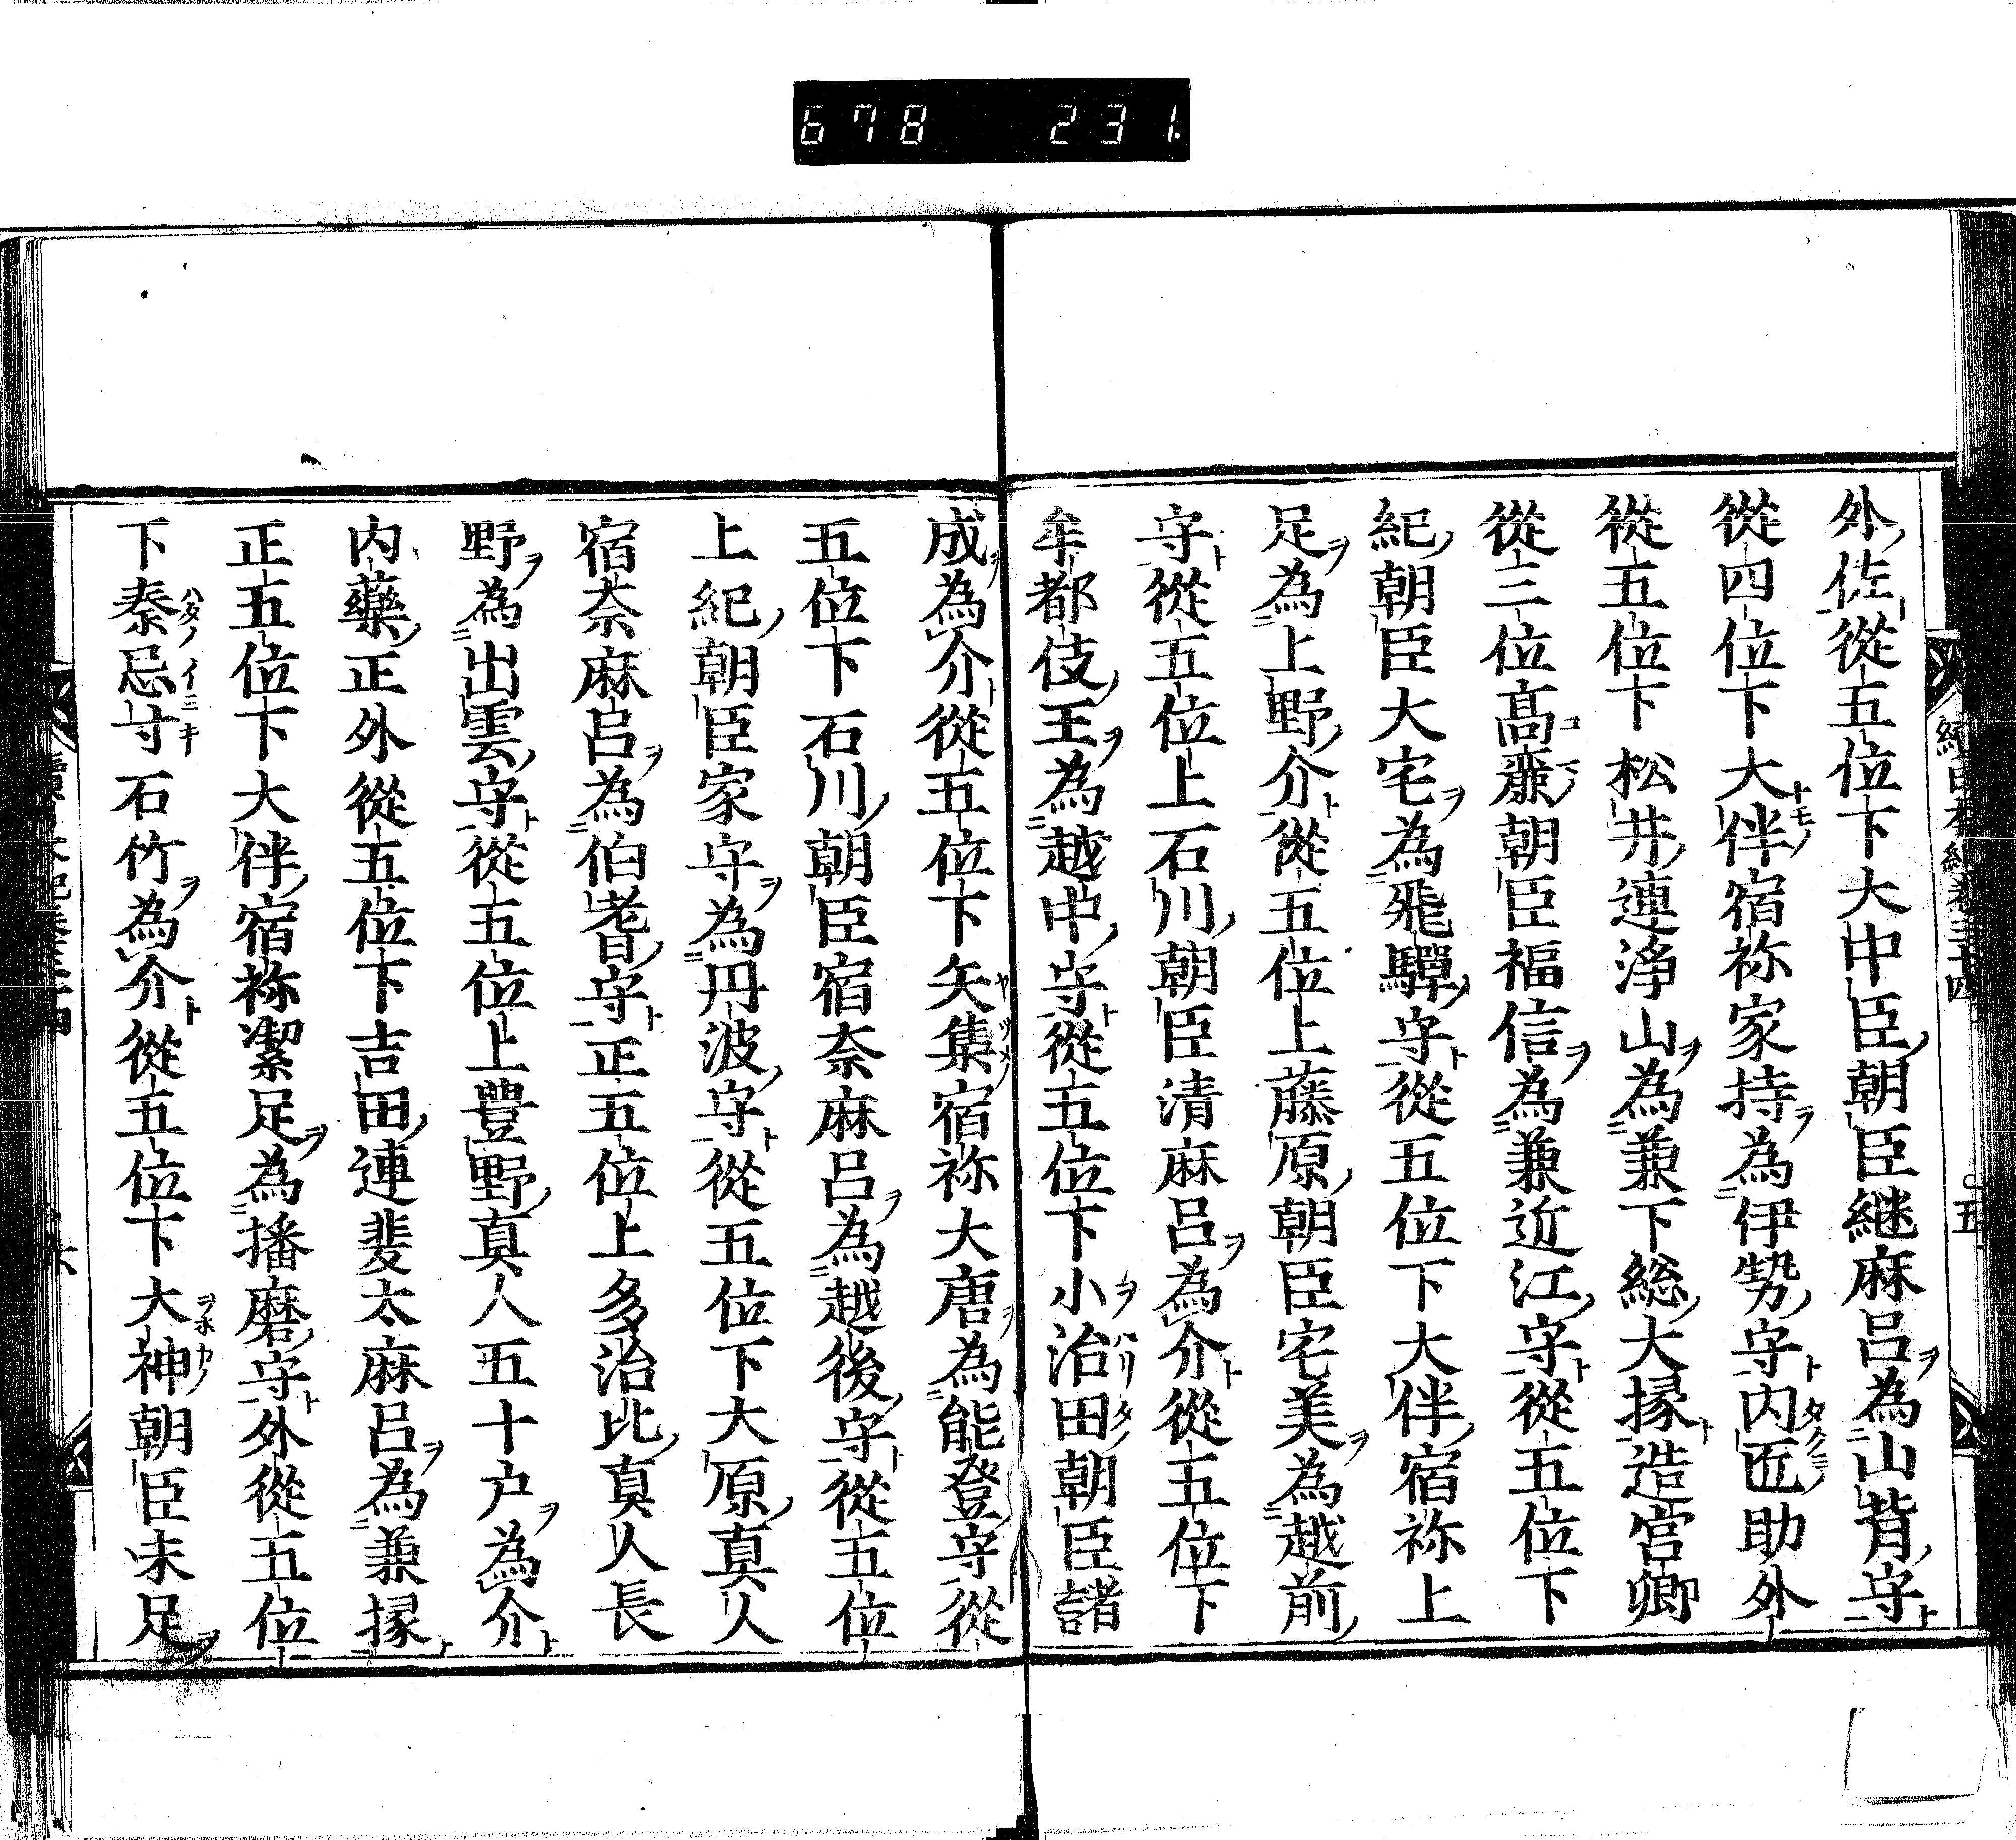 678 231.
外佐從五位下大中臣朝臣継麻呂為山背守
從四位下大伴宿祢家持為伊勢守内匠助外
從五位下松井連浄山為兼下総大掾造宮卿
從三位髙麗朝臣福信為兼近江守從五位下
紀朝臣大宅為飛驒守從五位下大伴宿祢上
足為上野介從五位上藤原朝臣宅美為越前
守從五位上石川朝臣清麻呂為介從五位下
牟都伎王為越中守從五位下小治田朝臣諸
成為介從五位下矢集宿祢大唐為能登守從
五位下石川朝臣宿奈麻呂為越後守從五位
上紀朝臣家守為丹波守從五位下大原真人
宿奈麻呂為伯耆守正五位上多治比真人長
野為出雲守從五位上豊野真人五十户為介
内藥正外從五位下吉田連斐太麻呂為兼掾
正五位下大伴宿祢潔足為播磨守外從五位
下秦忌寸石竹為介從五位下大神朝臣末足